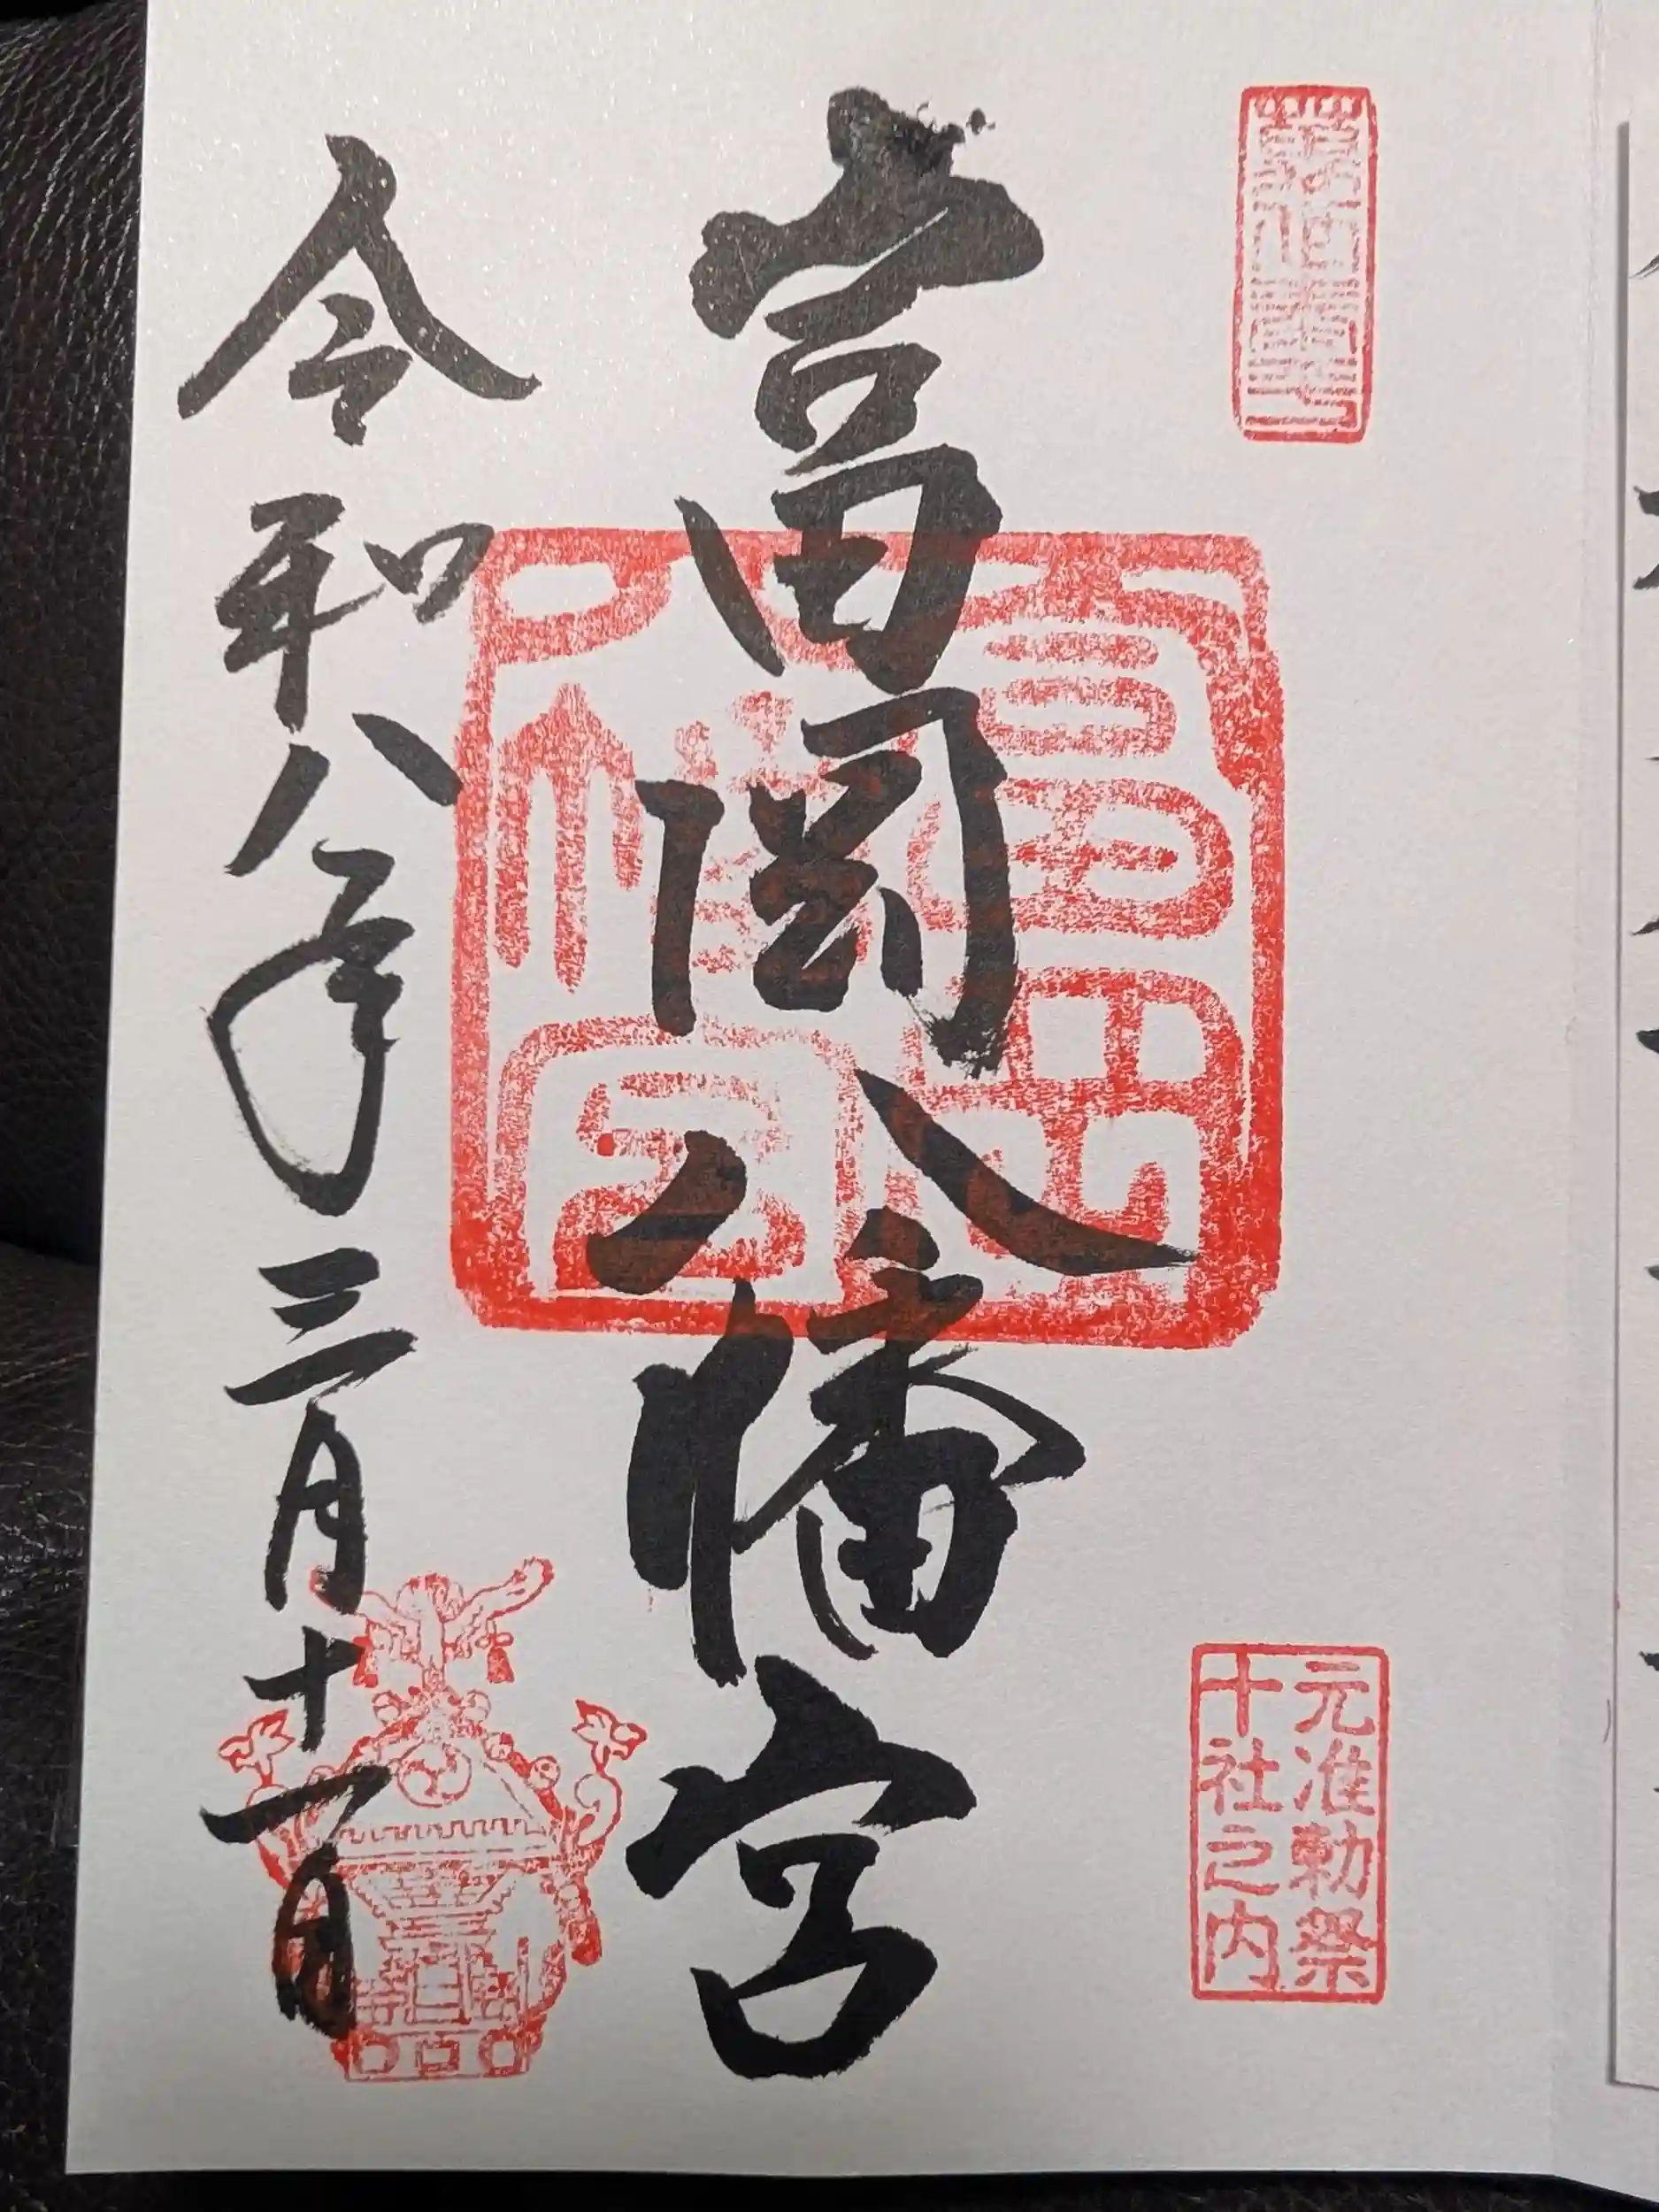 元准勅祭
十社之内
富岡八幡宮
令和八年三月十一日